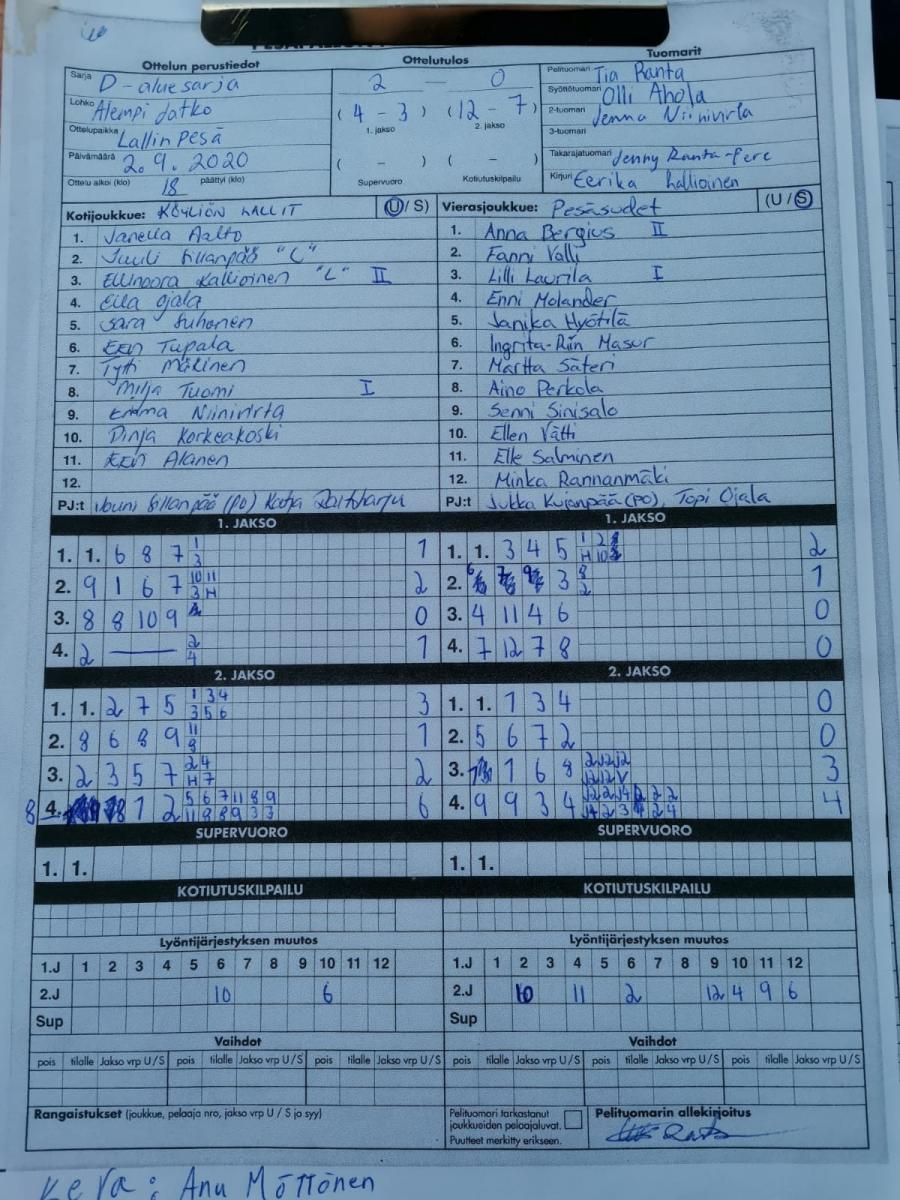 Ottelun perustiedot
Ottelutulos
Tuomarit
Sarja D-aluesarja
2 — 0
Pelituomari Tia Ranta
Syöttötuomari Olli Ahola
Lohko Alempi jatko
(4-3) (12-7)
1. jakso 2. jakso
2-tuomari Jenna Niinivirta
Ottelupaikka Lallin pesä
3-tuomari
Päivämäärä 2.9.2020
( - ) ( - )
Takarajatuomari Jenny Ranta-
Ottelu alkoi (klo) 18 päättyi (klo)
Supervuoro Kotiutuskilpailu
Kirjuri Eerika Kallioinen
Kotijoukkue: KÖYLIÖN LALLIT (U/S)
Vierasjoukkue: Pesäsudet (U/S)
1. Janella Aalto
1. Anna Bergius II
2. Juuli Sillanpää "L"
2. Fanni Valli
3. Ellinoora Kallioinen "L" II
3. Lilli Laurila I
4. Eila Ojala
4. Enni Molander
5. Sara Suhonen
5. Janika Hyötilä
6. Eeri Tupala
6. Ingrita-Riin Masur
7. Tytti Mäkinen
7. Martta Säteri
8. Milja Tuomi I
8. Aino Perkola
9. Emma Niinivirta
9. Senni Sinisalo
10. Pinja Korkeakoski
10. Ellen Vätti
11. Eeri Alanen
11. Elle Salminen
12.
12. Minka Rannanmäki
PJ:t Jouni Sillanpää (PO) Katja
PJ:t Jukka Kujanpää (PO), Topi Ojala
1. JAKSO
1. JAKSO
1. 1. 6 8 7 1
3
1
1. 1. 3 4 5 1 2
H 10
2
2. 9 1 6 7 10 11
3 H
2
2. 6 7 9 3 8
2
1
3. 8 8 10 9 0
3. 4 11 4 6 0
4. 2 — 2
4
1
4. 7 12 7 8 0
2. JAKSO
2. JAKSO
1. 1. 2 7 5 1 3 4
3 5 6
3
1. 1. 1 3 4 0
2. 8 6 8 9 11
8
1
2. 5 6 7 2 0
3. 2 3 5 7 2 4
H 7
2
3. 1 6 8 3
8 4. 1 2 5 6 7 11 8 9
11 8 8 9 3 3
6
4. 9 9 3 4 4
SUPERVUORO
SUPERVUORO
1. 1.
1. 1.
KOTIUTUSKILPAILU
KOTIUTUSKILPAILU
Lyöntijärjestyksen muutos
Lyöntijärjestyksen muutos
1.J 1 2 3 4 5 6 7 8 9 10 11 12
1.J 1 2 3 4 5 6 7 8 9 10 11 12
2.J 10 6
2.J 10 11 2 12 4 9 6
Sup
Sup
Vaihdot
Vaihdot
pois tilalle Jakso vrp U/S pois tilalle Jakso vrp U/S pois tilalle Jakso vrp U/S
pois tilalle Jakso vrp U/S pois tilalle Jakso vrp U/S pois tilalle Jakso vrp U/S
Rangaistukset (joukkue, pelaaja nro, jakso vrp U / S ja syy)
Pelituomari tarkastanut
joukkueiden pelaajaluvat.
Puutteet merkitty erikseen.
Pelituomarin allekirjoitus
Kera: Anu Möttönen